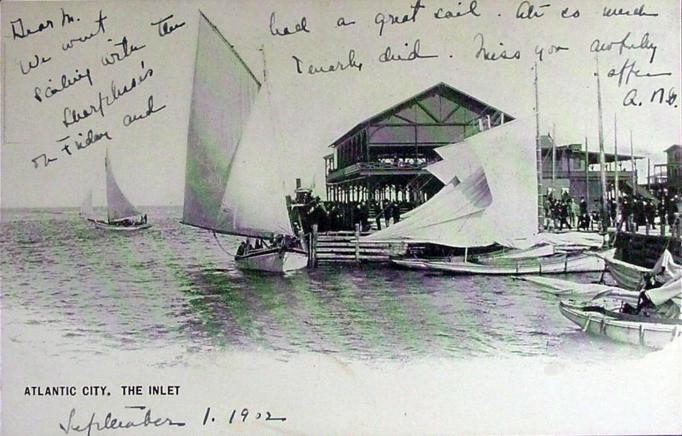 Dear M.
We went
sailing with the
Sharpless's
on Friday and
had a great sail. Ate so much
I nearly died. Miss you awfully
often
A. M. S.
ATLANTIC CITY. THE INLET
September 1. 1902